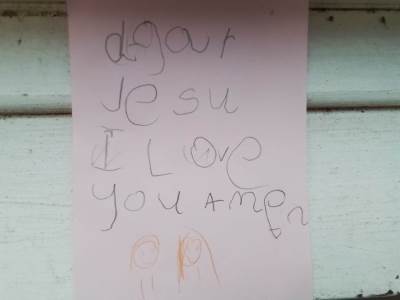 dgour
Jesu
I Love
you Amen